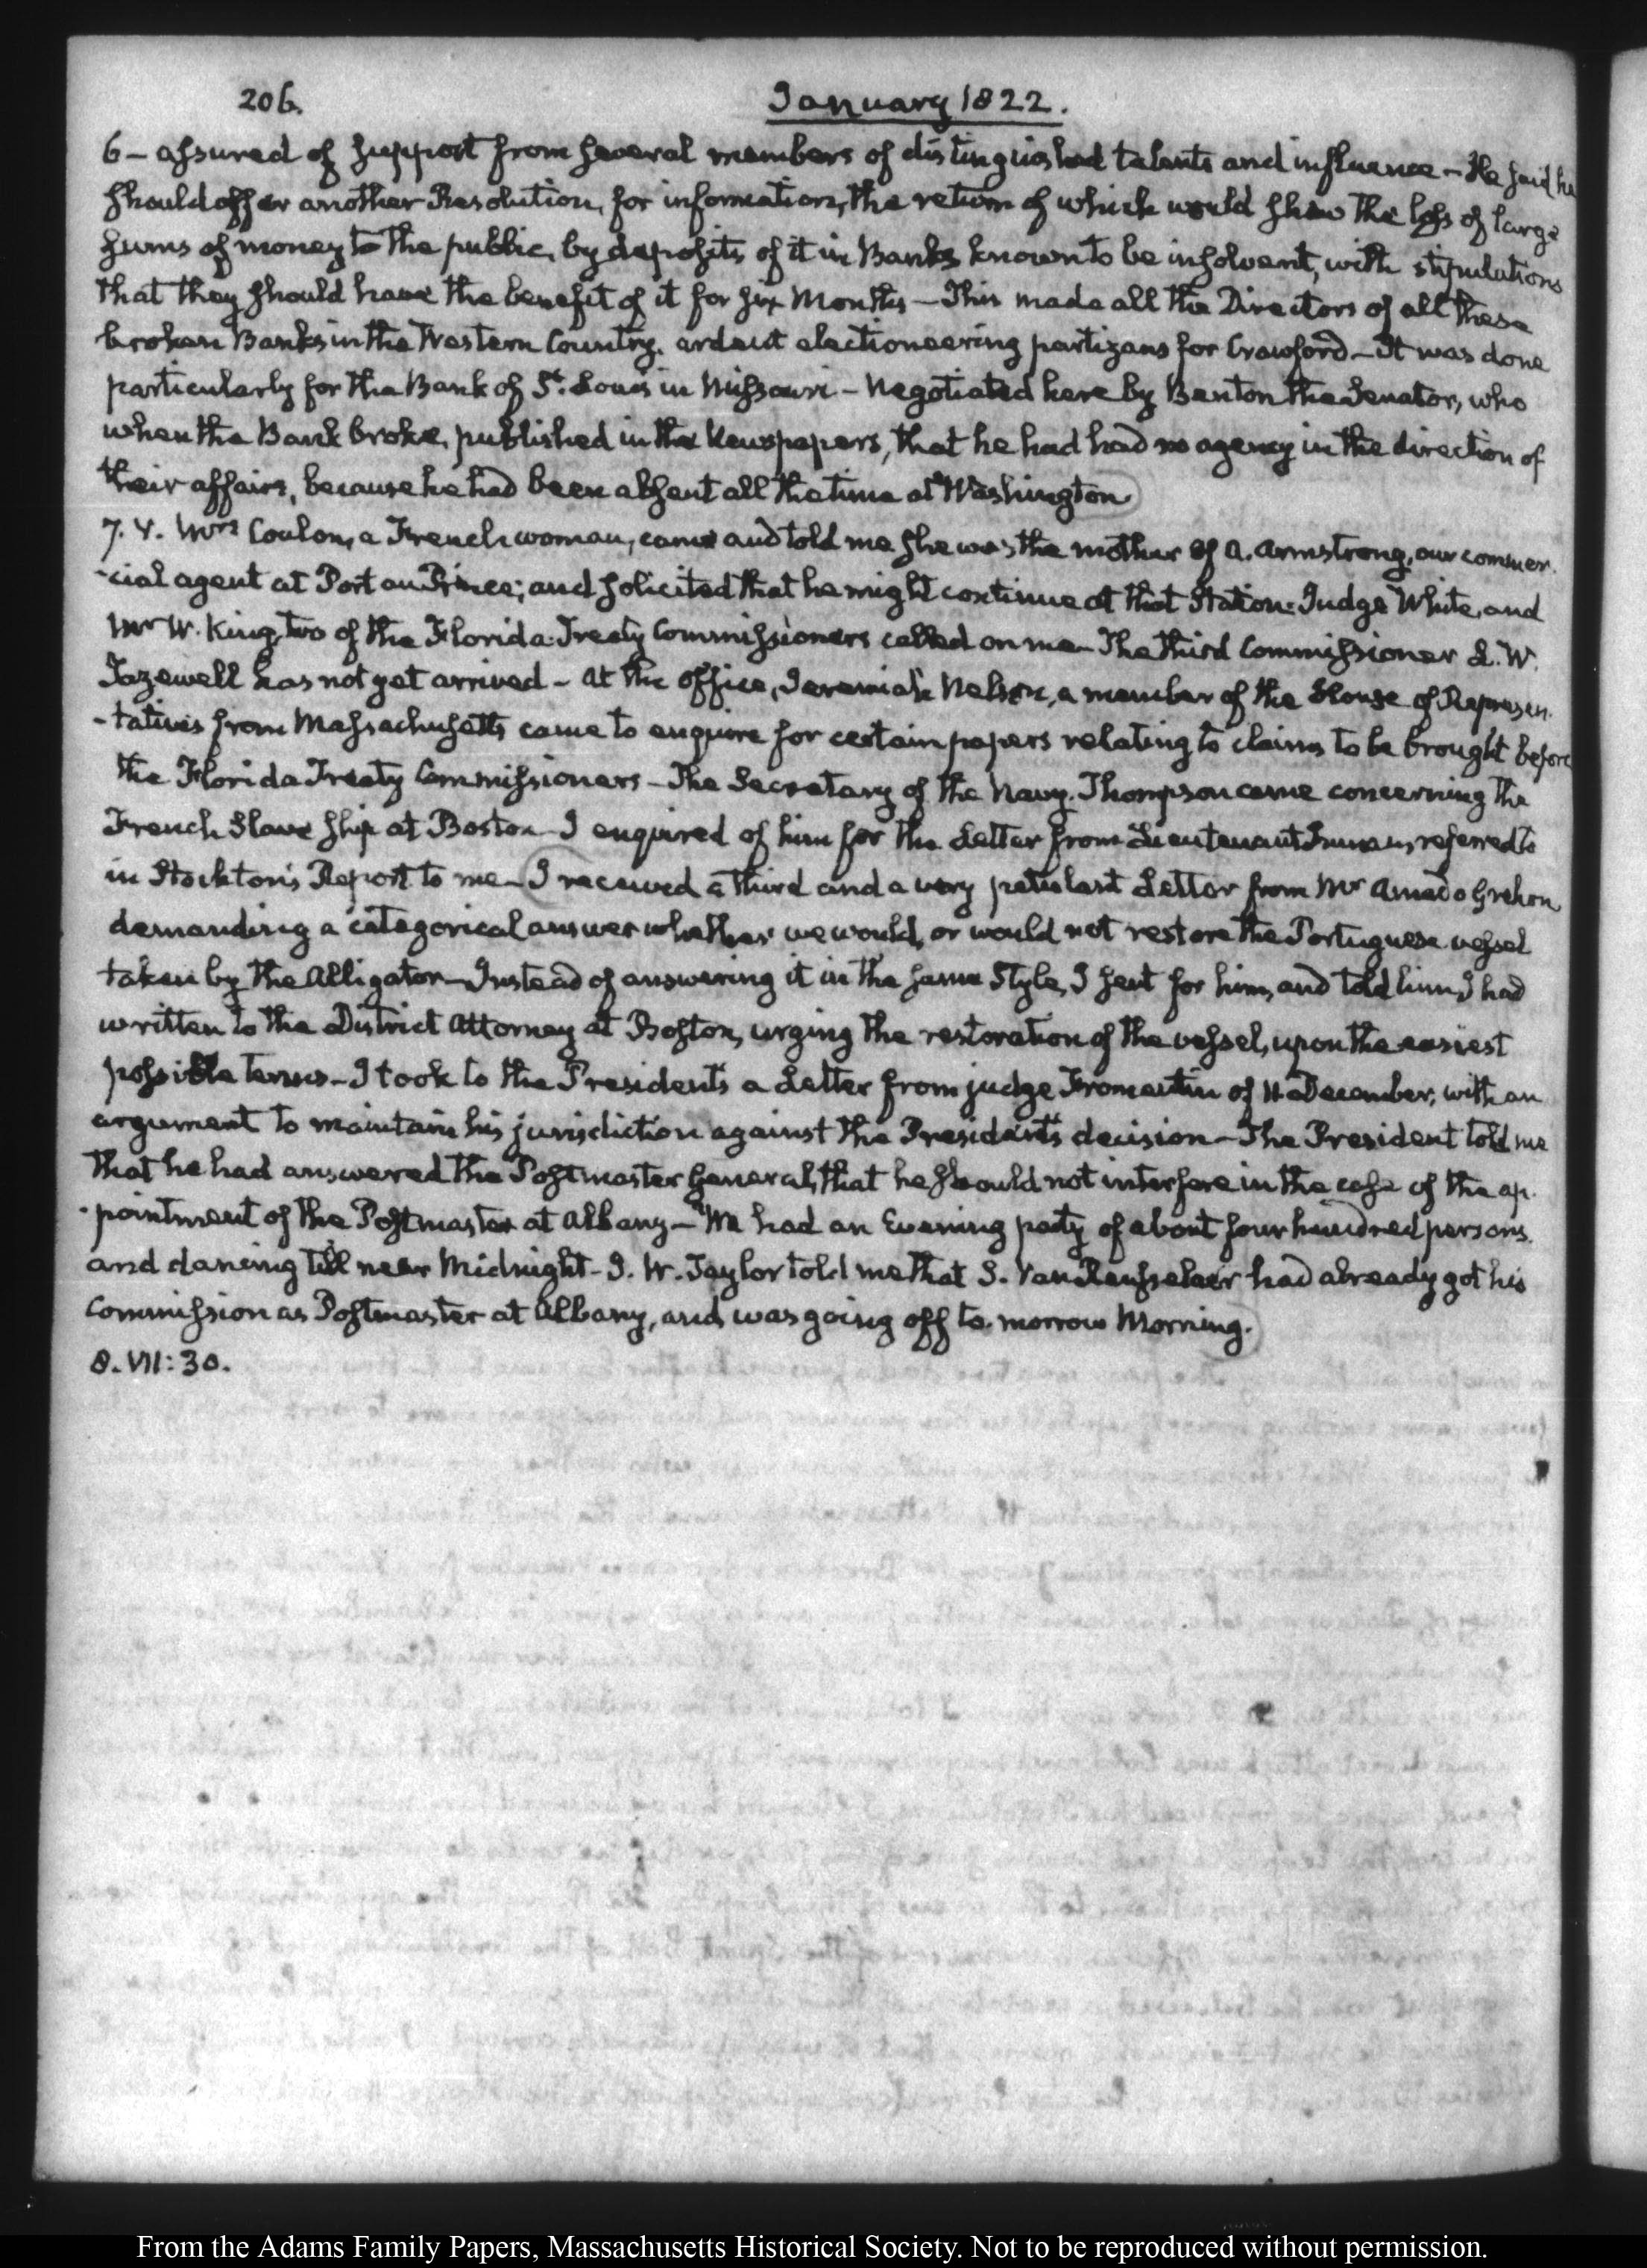 206.
January 1822.
6 – assured of support from several members of distinguished talents and influence – He said he
should offer another Resolution, for information, the return of which would shew the loss of large
sums of money to the public, by deposits of it in Banks known to be insolvent, with stipulations
that they should have the benefit of it for six Months – This made all the Directors of all these
broken Banks in the Western Country, ardent electioneering partizans for Crawford – It was done
particularly for the Bank of St. Louis in Missouri – Negotiated here by Benton the Senator, who
when the Bank broke, published in the Newspapers, that he had had no agency in the direction of
their affairs, because he had been absent all the time at Washington
7. V. Mrs Coulon, a French woman, came and told me she was the mother of A. Armstrong, our commer-
-cial agent at Port au Prince; and solicited that he might continue at that Station. Judge White, and
Mr W. King, two of the Florida Treaty Commissioners called on me – The third Commissioner L. W.
Tazewell has not yet arrived – At the Office, Jeremiah Nelson, a member of the House of Represen-
-tatives from Massachusetts came to enquire for certain papers relating to claims to be brought before
the Florida Treaty Commissioners – The Secretary of the Navy, Thompson came concerning the
French Slave Ship at Boston – I enquired of him for the Letter from Lieutenant referred to
in Stockton's Report to me – I received a third and a very petulant Letter from Mr Amado Grehon
demanding a categorical answer whether we would, or would not restore the Portuguese vessel
taken by the Alligator – Instead of answering it in the same Style, I sent for him, and told him I had
written to the District Attorney at Boston, urging the restoration of the vessel, upon the easiest
possible terms – I took to the President's a Letter from judge Fromentin of December, with an
argument to maintain his jurisdiction against the President's decision – The President told me
that he had answered the Postmaster General, that he should not interfere in the case of the ap-
-pointment of the Postmaster at Albany – We had an Evening party of about four hundred persons
and dancing till near Midnight – J. W. Taylor told me that S. Van Rensselaer had already got his
Commission as Postmaster at Albany, and was going off to-morrow Morning.
8. VII: 30.
From the Adams Family Papers, Massachusetts Historical Society. Not to be reproduced without permission.